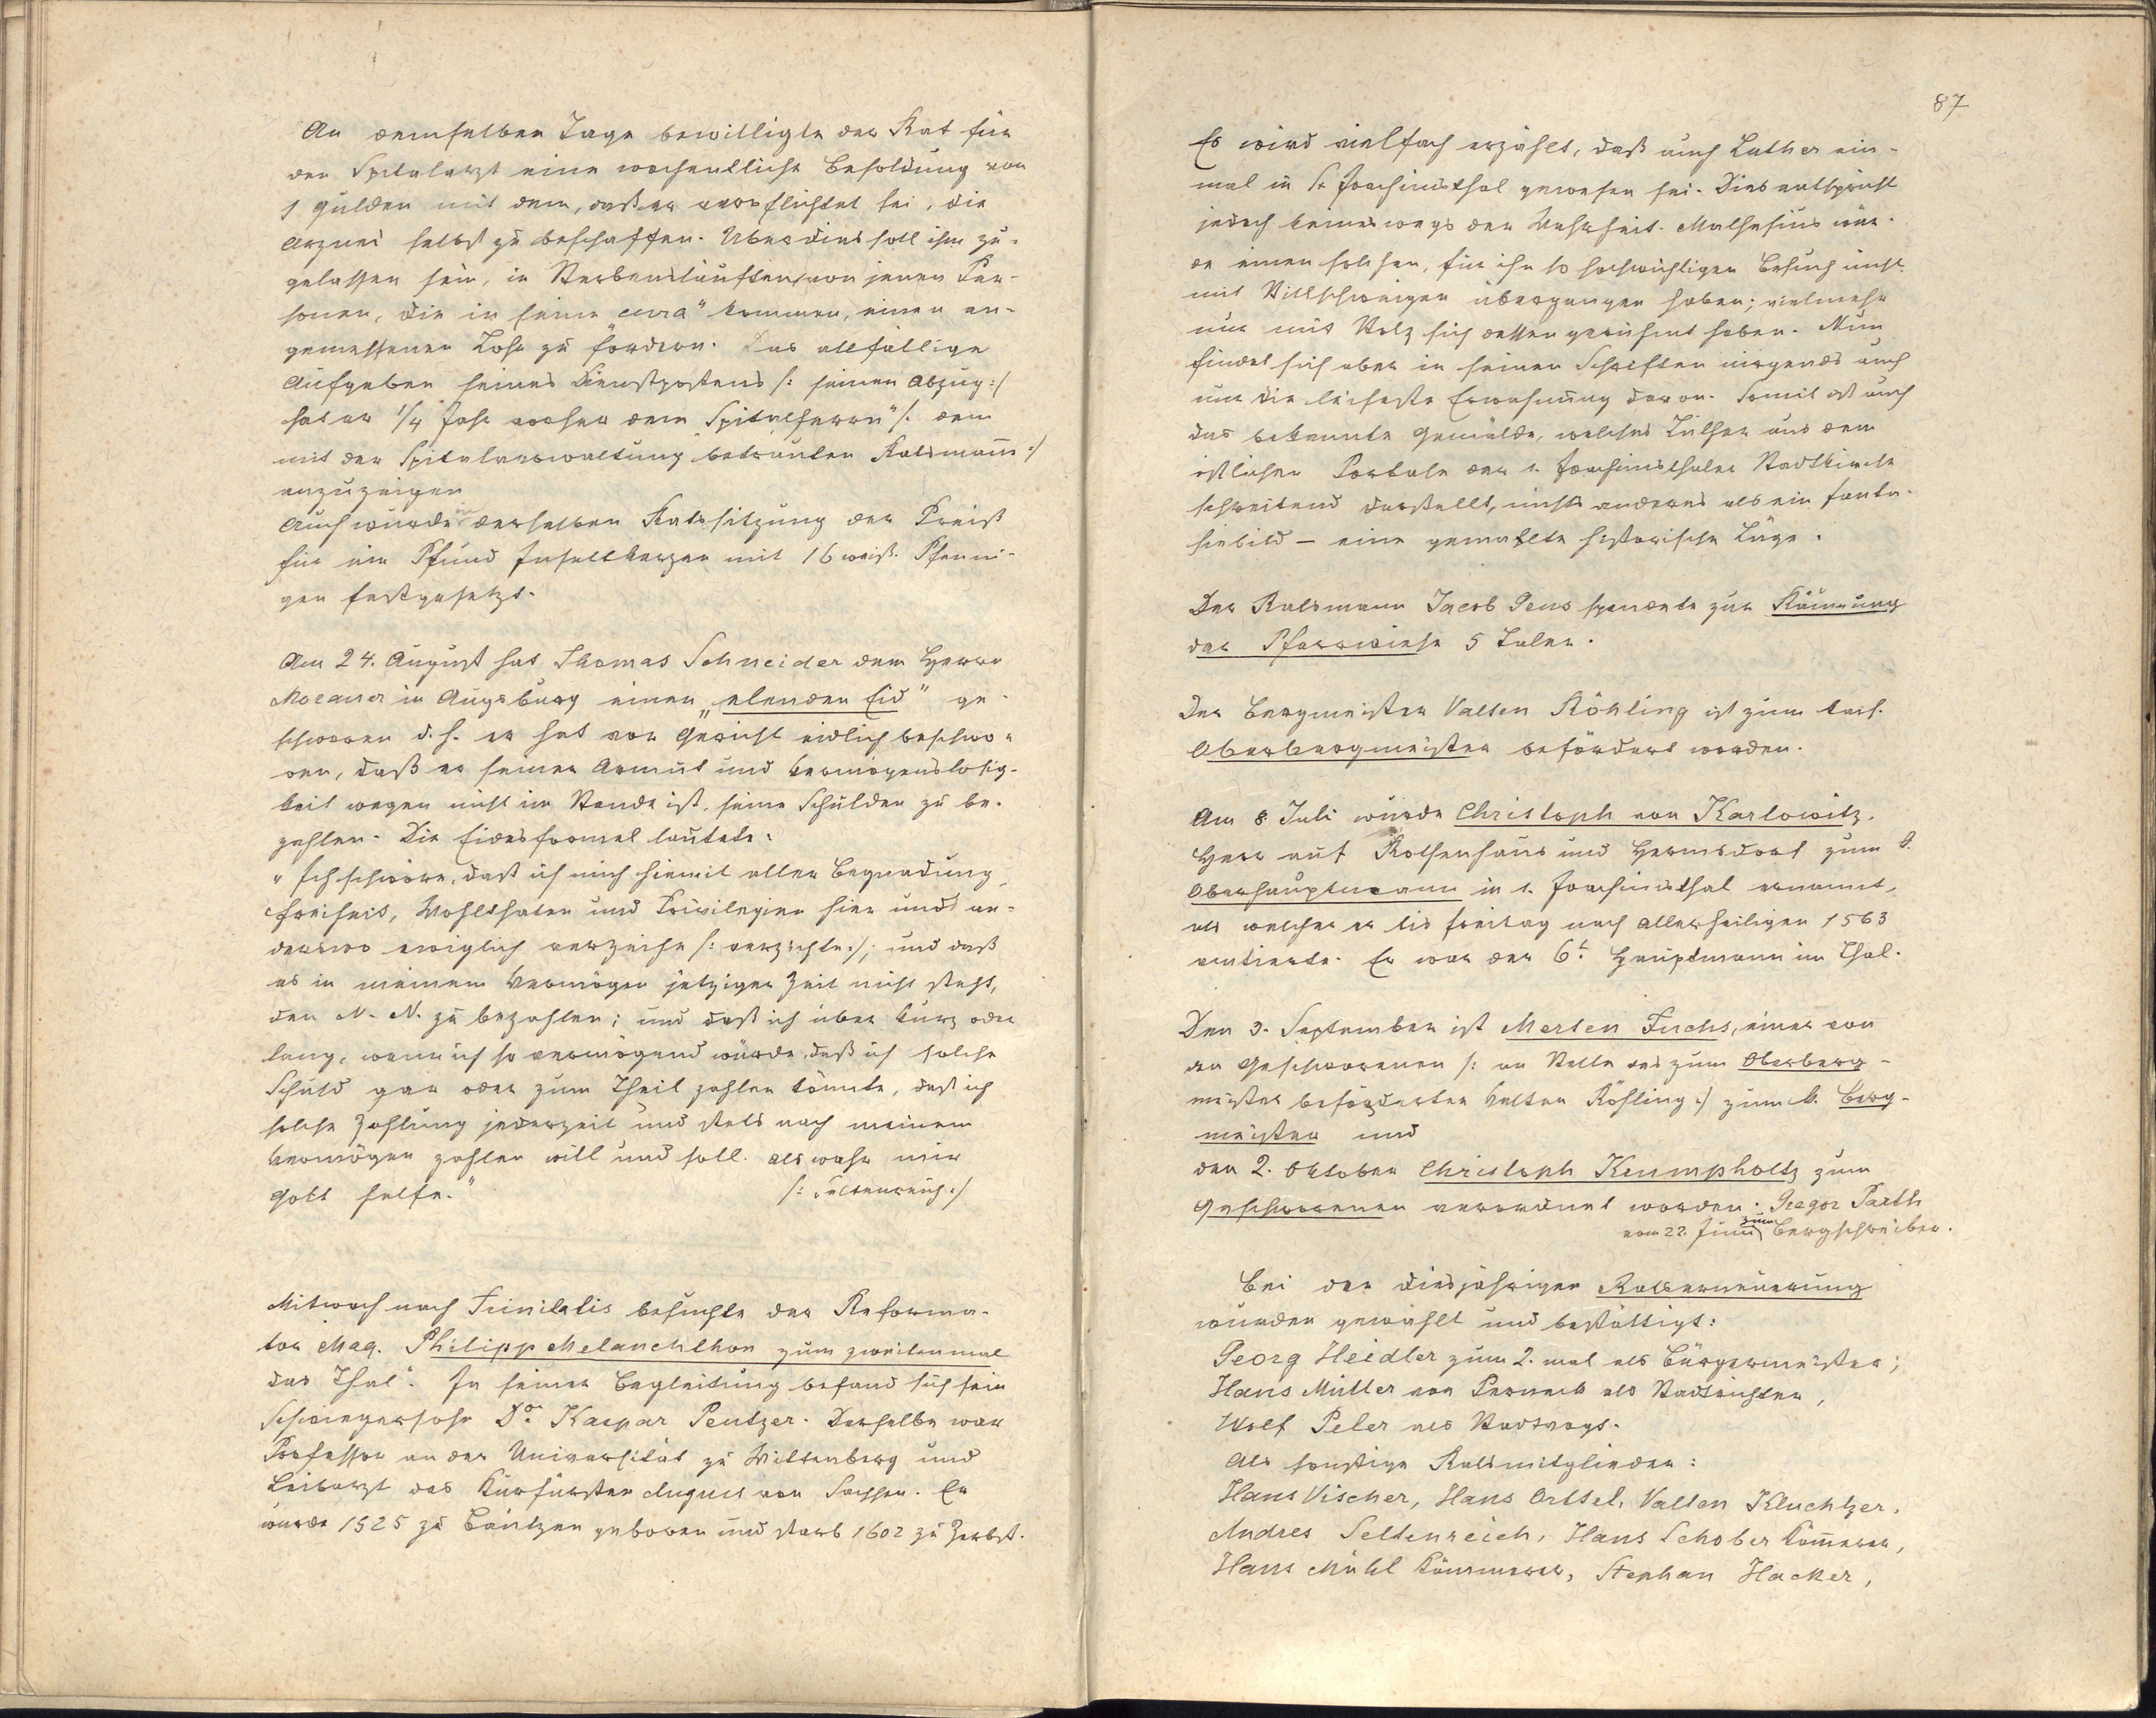 An demselben Tage bewilligte der Rat für
den Spitalarzt eine wochentliche Besoldung von
1 Gulden mit dem, daß er verpflichtet sei, die
Arznei selbst zu beschaffen. Überdies soll ihm zu-
gelassen sein, in Sterbensläuften von jenen Per-
sonen, die in seine „cura" kommen, einen an-
gemessenen Lohn zu fordern. Das allfällige
Aufgeben seines Dienstpostens /: seinen Abzug :/
hat er 1/4 Jahr vorher dem Spitalherrn" /: dem
mit der Spitalverwaltung betrauten Ratsmann :/
anzuzeigen
Auch wurde in derselben Ratssitzung der Preiß
für ein Pfund Inseltkerzen mit 16 weiß. Pfenni-
gen festgesetzt.
Am 24. August hat Thomas Schneider dem Herrn
in Augsburg einen „elenden Eid" ge-
schworen d. h. er hat vor Gericht eidlich beschwo-
ren, daß er seiner Armut und Vermögenslosig-
keit wegen nicht im Stande ist, seine Schulden zu be-
zahlen. Die Eidesformel lautete:
„Ich schwöre, daß ich mich hiemit aller Begnadung,
Freiheit, Wohlthaten und Privilegien hier und an-
derswo ewiglich verzeihe /: verzichte :/; und daß
es in meinem Vermögen jetziger Zeit nicht steht,
den N. N. zu bezahlen; und daß ich über kurz oder
lang, wenn ich so vermögend würde, daß ich solche
Schuld gar oder zum Theil zahlen könnte, daß ich
solche Zahlung jederzeit und stets nach meinem
Vermögen zahlen will und soll. Als wahr mir
Gott helfe." /: Seltenreich :/
Mitwoch nach Trinitatis besuchte der Reforma-
tor Mag. Philipp Melanchthon zum zweitenmal
das Thal". In seiner Begleitung befand sich sein
Schwiegersohn Dor. Kaspar Peutzer. Derselbe war
Professor an der Universität zu Wittenberg und
Leibarzt des Kurfürsten August von Sachsen. Er
wurde 1525 zu Bautzen geboren und starb 1602 zu Zerbst.
87
Es wird vielfach erzählt, daß auch Luther ein-
mal in St. Joachimsthal gewesen sei. Dies entspricht
jedoch keineswegs der Wahrheit. Mathesius wür-
de einen solchen, für ihn so hochwichtigen Besuch nicht
mit Stillschweigen übergangen haben; vielmehr
nur mit Stolz sich dessen gerühmt haben. Nun
findet sich aber in seinen Schriften nirgends auch
nur die leiseste Erwähnung davon. Somit ist auch
das bekannte Gemälde, welches Luther aus dem
östlichen Portale der s. Joachimsthaler Stadtkirche
schreitend darstellt, nichts anderes als ein Fanta-
siebild — eine gemahlte historische Lüge.
Der Ratsmann Jacob Geus spendete zur Räumung
der Pfarrwiese 5 Taler.
Der Bergmeister Valten Röhling ist zum kais.
Oberbergmeister befördert worden.
Am 8. Juli wurde Christoph von Karlowitz,
Herr auf Rothenhaus und Hermsdorf zum k.
Oberhauptmann in s. Joachimsthal ernannt,
als welcher er bis Freitag nach Allerheiligen 1563
amtierte. Er war der 6t. Hauptmann im Thal.
Den 3. September ist Merten Fuchs, einer von
den Geschworenen /: an Stelle des zum Oberberg-
meister beförderten Valten Röhling :/ zum k. Berg-
meister und
den 2. Oktober Christoph Kumpholtz zum
Geschworenen verordnet worden. Gregor Parth
vom 22. Juni zum Bergschreiber.
Bei der diesjährigen Ratserneuerung
wurden gewählt und bestättigt:
Georg Heidler zum 2. mal als Bürgermeister;
Hans Müller von Berneck als Stadtrichter,
Wolf Peler als Stadtvogt.
Als sonstige Ratsmitglieder:
Hans Vischer, Hans Örttel, Valten Kluchtzer,
Andres Seltenreich, Hans Schober Kämerer,
Hans Mühl Kämmerer, Stephan Hacker,